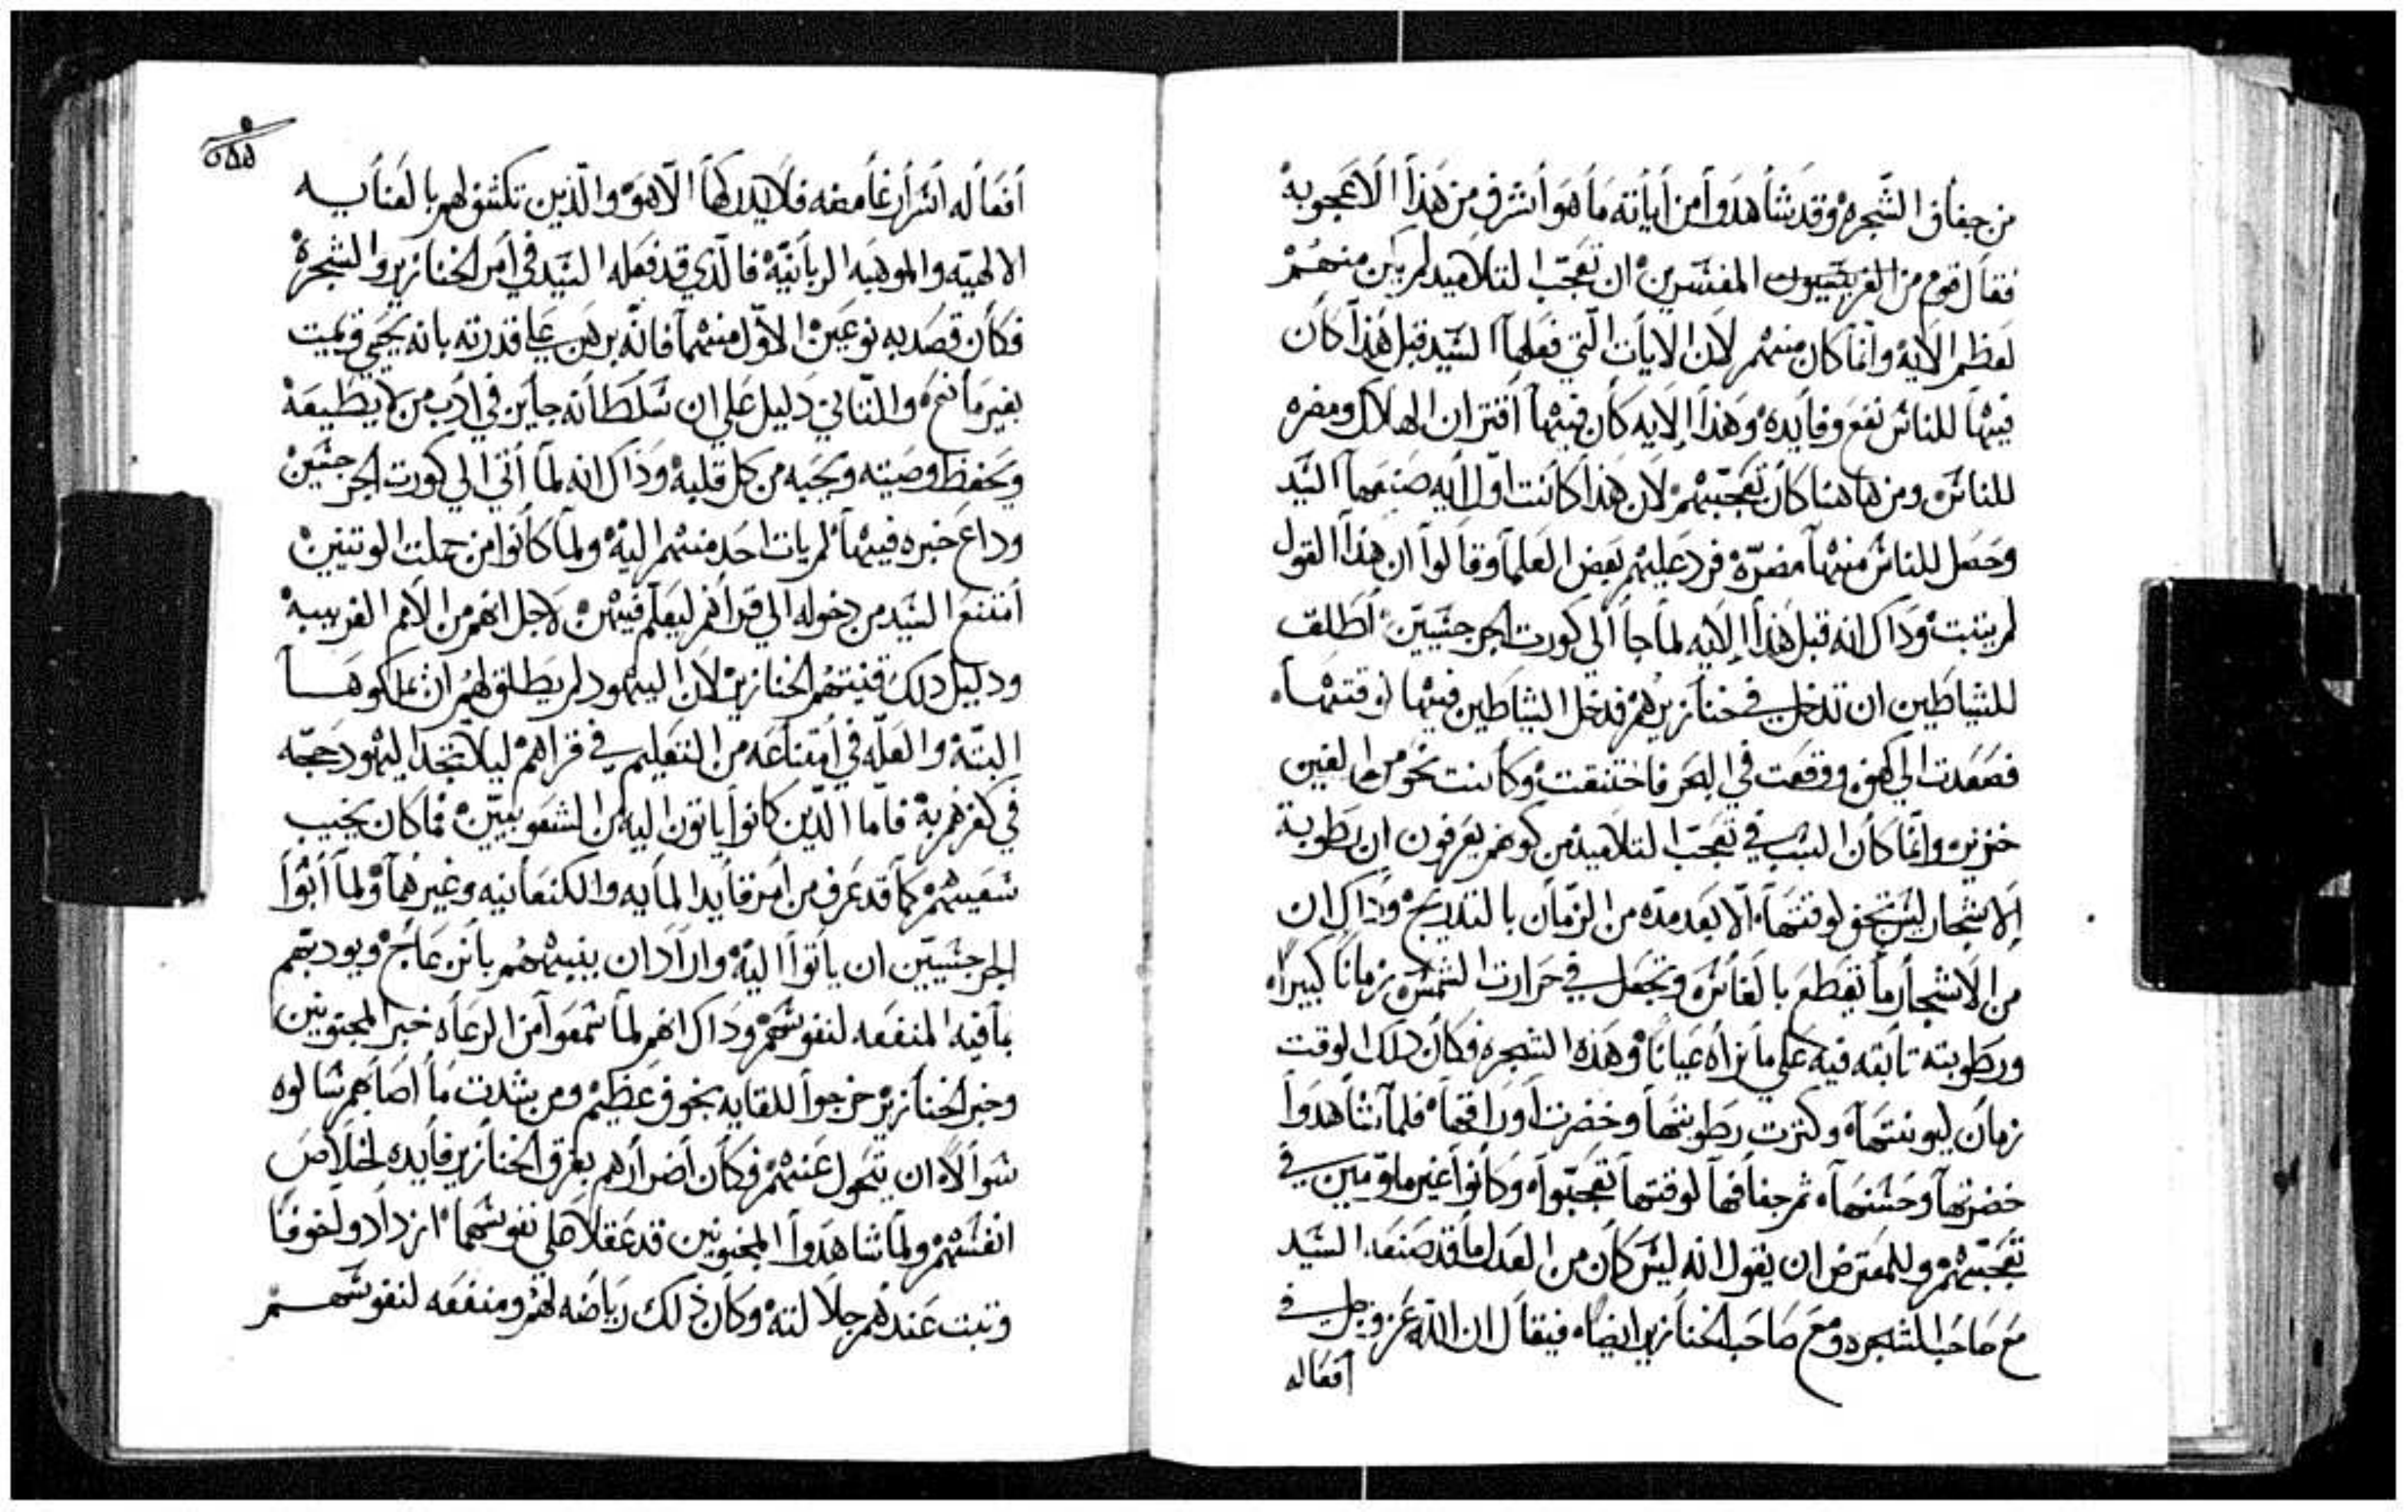 من جفاف الشجره وقد شاهدوا من أياته ما هو أشرف من هذا الاعجوبه
فقال قوم من المفسرين ان تعجب التلاميد لم يكن منهم
لعظم الايه وانما كان منهم لان الايات التي فعلها السيد قبل هذا كان
فيها للناس نفع وفايده وهذا الايه كان فيها اقتران الهلاك ومضره
للناس ومن هاهنا كان تعجبهم لان هذا كانت اول ايه صنعها السيد
وحصل للناس منها مضره فرد عليهم بعض العلما وقالوا ان هذا القول
لم يثبت وذاك انه قبل هذا الايه لما جا الي كورت الجرجسيين اطلق
للشياطين ان تدخل في خنازيرهم فدخل الشياطين فيها لوقتها
فصعدت الي كهف ووقعت في البحر فاختنقت وكانت نحو من الفين
خنزير وانما كان السبب في تعجب التلاميذ من كونهم يعرفون ان رطوبة
الاشجار ليس تجف لوقتها الا بعد مده من الزمان بالتدريج وذاك ان
من الاشجار ما يقطع بالفاس وتجعل في حرارت الشمس زمانا كبيرا
ورطوبته تابته فيه علي ما نراه عيانا وهذه الشجره فكان ذلك الوقت
زمان ليونتها وكترت رطوبتها وخضرت اوراقها فلما شاهدوا
خضرتها وحسنها ثم جفافها لوقتها تعجبوا وكانوا غير ملومين في
تعجبهم وللمعترض ان يقول انه ليس كان من العدل ما قد صنعه السيد
مع صاحب الشجره ومع صاحب الخنازير ايضا فيقال ان الله عز وجل في
أفعاله
أفعاله اسرار غامضه فلا يدركها الا هو والذين تكشف لهم بالعنايه
الالهيه والموهبه الربانيه فالذي قد فعله السيد في امر الخنازير والشجره
فكان قصد به نوعين الاول منهما فانه برهن علي قدرته بانه يحيي ويميت
بغير مانع والثاني دليل علي ان سلطانه جايز في ادب من لا يطيعه
ويحفظ وصيته ويحبه من كل قلبه وذاك انه لما أتي الي كورت الجرجسين
وداع خبره فيها لم يات احد منهم اليه ولما كانوا من جملت الوتنين
أمتنع السيد من دخوله الي قراهم ليعلم فيهن لاجل انهم من الامم الغريبه
ودليل ذلك قنيتهم الخنازير لان اليهود لم يطلق لهم ان يملكوها
البته والعله في أمتناعه من التعليم في قراهم ليلا تتخد اليهود حجه
في كفرهم به فاما الدين كانوا ياتون اليه من الشعوبيين فما كان يخيب
سعيهم كما قد عرف من امر قايد المايه والكنعانيه وغيرهما ولما أبوا
الجرجسيين ان ياتوا اليه واراد ان ينبههم بانزعاج ويوديهم
بما فيه المنفعه لنفوسهم وذاك انهم لما سمعوا من الرعاه خبر المجنونين
وخبر الخنازير خرجوا للقايه بخوف عظيم ومن شدت ما اصابهم سالوه
سوالا ان يتحول عنهم فكان أضرارهم بغرق الخنازير فايده لخلاص
انفسهم ولما شاهدوا المجنونين قد عقلا علي نفوسهما ازدادوا خوفا
وتبت عندهم جلالته وكان ذلك رياضه لهم ومنفعه لنفوسهم